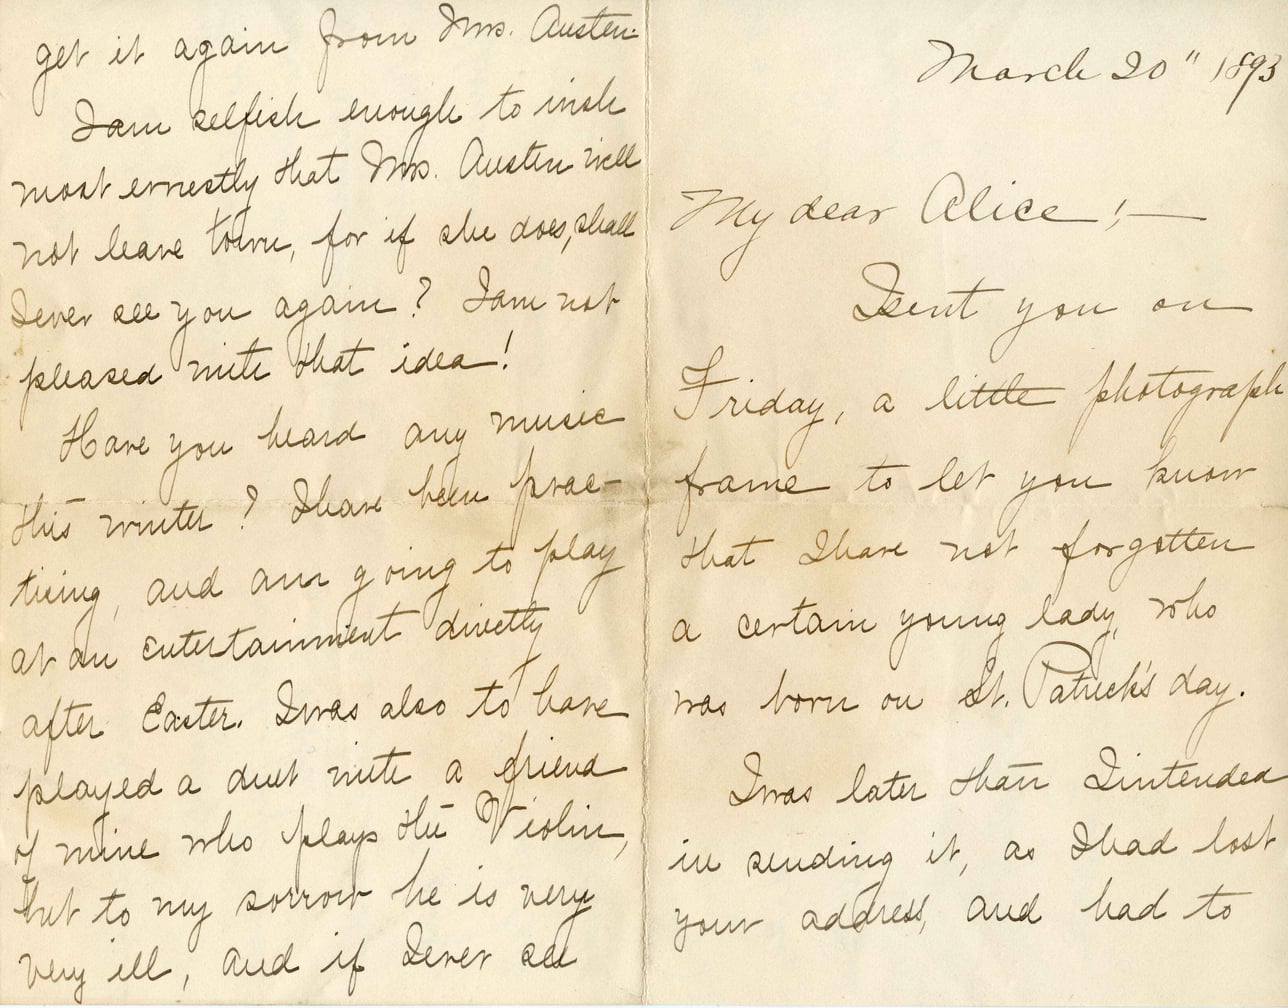 March 20" 1893
My dear Alice!,—
I sent you on
Friday, a little photograph
frame to let you know
that I have not forgotten
a certain young lady, who
was born on St. Patrick's day.
I was later than I intended
in sending it, as I had lost
your address, and had to
get it again from Mrs. Austen.
I am selfish enough to wish
most ernestly that Mrs. Austen will
not leave town, for if she does, shall
I ever see you again? I am not
pleased with that idea!
Have you heard any music
this winter? I have been prac-
tising, and am going to play
at an entertainment directly
after Easter. I was also to have
played a duet with a friend
of mine who plays the Violin,
but to my sorrow he is very
very ill, and if I ever see